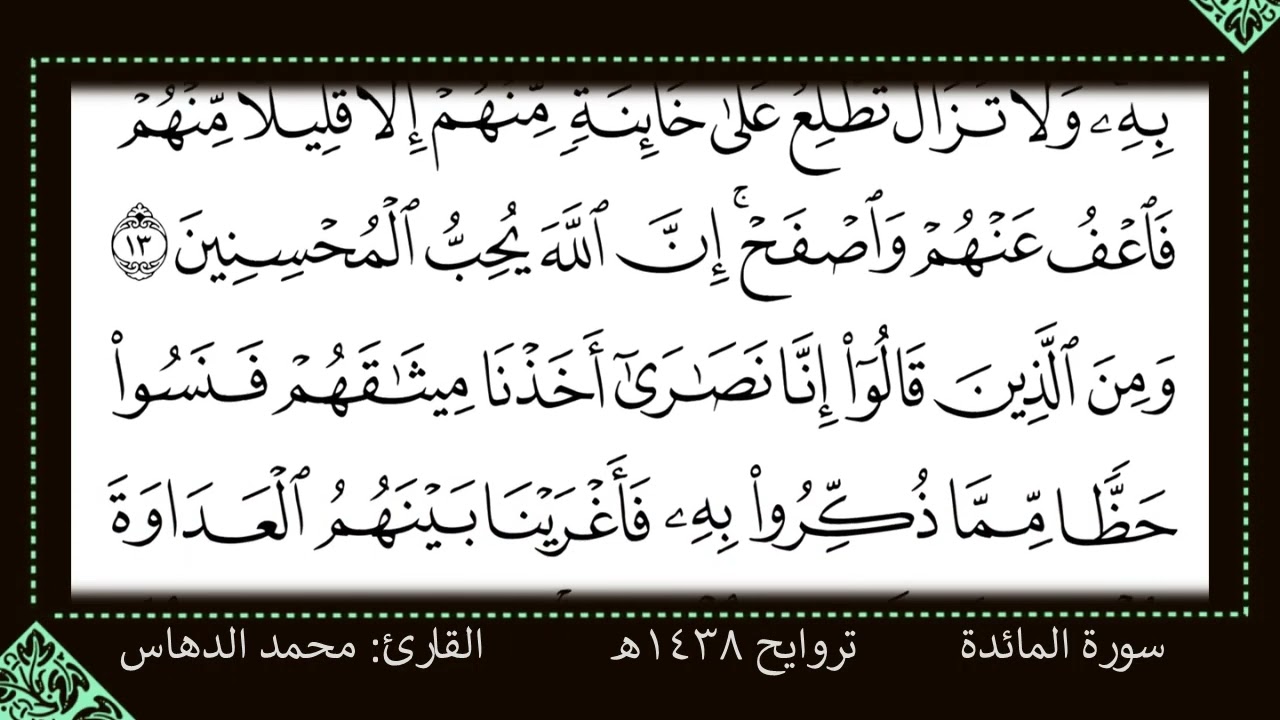 بِهِۦ وَلَا تَزَالُ تَطَّلِعُ عَلَىٰ خَآئِنَةٍ مِّنْهُمْ إِلَّا قَلِيلًا مِّنْهُمْ
فَٱعْفُ عَنْهُمْ وَٱصْفَحْ ۚ إِنَّ ٱللَّهَ يُحِبُّ ٱلْمُحْسِنِينَ ١٣
وَمِنَ ٱلَّذِينَ قَالُوٓا۟ إِنَّا نَصَـٰرَىٰٓ أَخَذْنَا مِيثَـٰقَهُمْ فَنَسُوا۟
حَظًّا مِّمَّا ذُكِّرُوا۟ بِهِۦ فَأَغْرَيْنَا بَيْنَهُمُ ٱلْعَدَاوَةَ
سورة المائدة تروايح ١٤٣٨هـ القارئ: محمد الدهاس